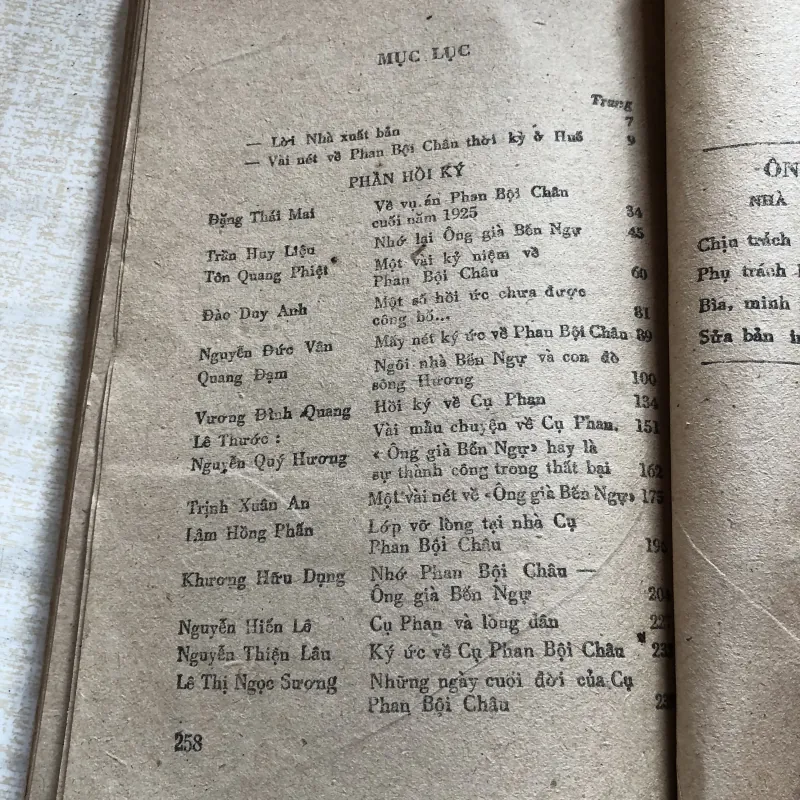 MỤC LỤC
Trang
— Lời Nhà xuất bản 7
— Vài nét về Phan Bội Châu thời kỳ ở Huế 9
PHẦN HỒI KÝ
Đặng Thái Mai Về vụ án Phan Bội Châu
cuối năm 1925 34
Trần Huy Liệu Nhớ lại Ông già Bến Ngự 45
Tôn Quang Phiệt Một vài kỷ niệm về
Phan Bội Châu 60
Đào Duy Anh Một số hồi ức chưa được
công bố... 81
Nguyễn Đức Vân Mấy nét ký ức về Phan Bội Châu 89
Quang Đạm Ngôi nhà Bến Ngự và con đò
sông Hương 100
Vương Đình Quang Hồi ký về Cụ Phan 134
Lê Thước : Vài mẩu chuyện về Cụ Phan. 151
Nguyễn Quý Hương « Ông già Bến Ngự» hay là
sự thành công trong thất bại 162
Trịnh Xuân An Một vài nét về «Ông già Bến Ngự» 175
Lâm Hồng Phấn Lớp vỡ lòng tại nhà Cụ
Phan Bội Châu
Khương Hữu Dụng Nhớ Phan Bội Châu —
Ông già Bến Ngự 204
Nguyễn Hiến Lê Cụ Phan và lòng dân
Nguyễn Thiện Lâu Ký ức về Cụ Phan Bội Châu
Lê Thị Ngọc Sương Những ngày cuối đời của Cụ
Phan Bội Châu
258
ÔN
NHÀ
Chịu trách
Phụ trách
Bìa, minh
Sửa bản in